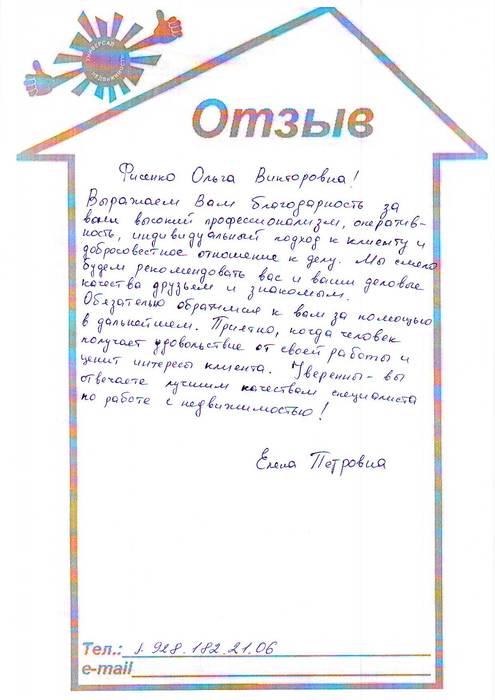 УНИВЕРСАЛ
НЕДВИЖИМОСТЬ
Отзыв
Фисенко Ольга Викторовна!
Выражаем Вам благодарность за
ваш высокий профессионализм, оператив-
ность, индивидуальный подход к клиенту и
добросовестное отношение к делу. Мы смело
будем рекомендовать вас и ваши деловые
качества друзьям и знакомым.
Обязательно обратимся к вам за помощью
в дальнейшем. Приятно, когда человек
получает удовольствие от своей работы и
ценит интересы клиента. Уверенны - вы
отвечаете лучшим качествам специалиста
по работе с недвижимостью!
Елена Петровна
Тел.: 928.182.21.06
e-mail